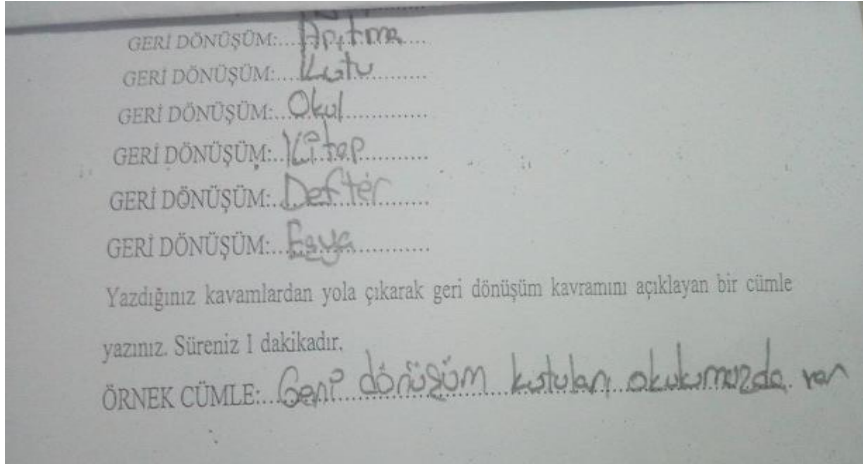 GERİ DÖNÜŞÜM:....Arıtma....
GERİ DÖNÜŞÜM:....Kutu............
GERİ DÖNÜŞÜM:...Okul..............
GERİ DÖNÜŞÜM:..Kitap............
GERİ DÖNÜŞÜM:..Defter........
GERİ DÖNÜŞÜM:...Eşya............
Yazdığınız kavamlardan yola çıkarak geri dönüşüm kavramını açıklayan bir cümle
yazınız. Süreniz 1 dakikadır.
ÖRNEK CÜMLE:...Geri dönüşüm kutuları okulumuzda var